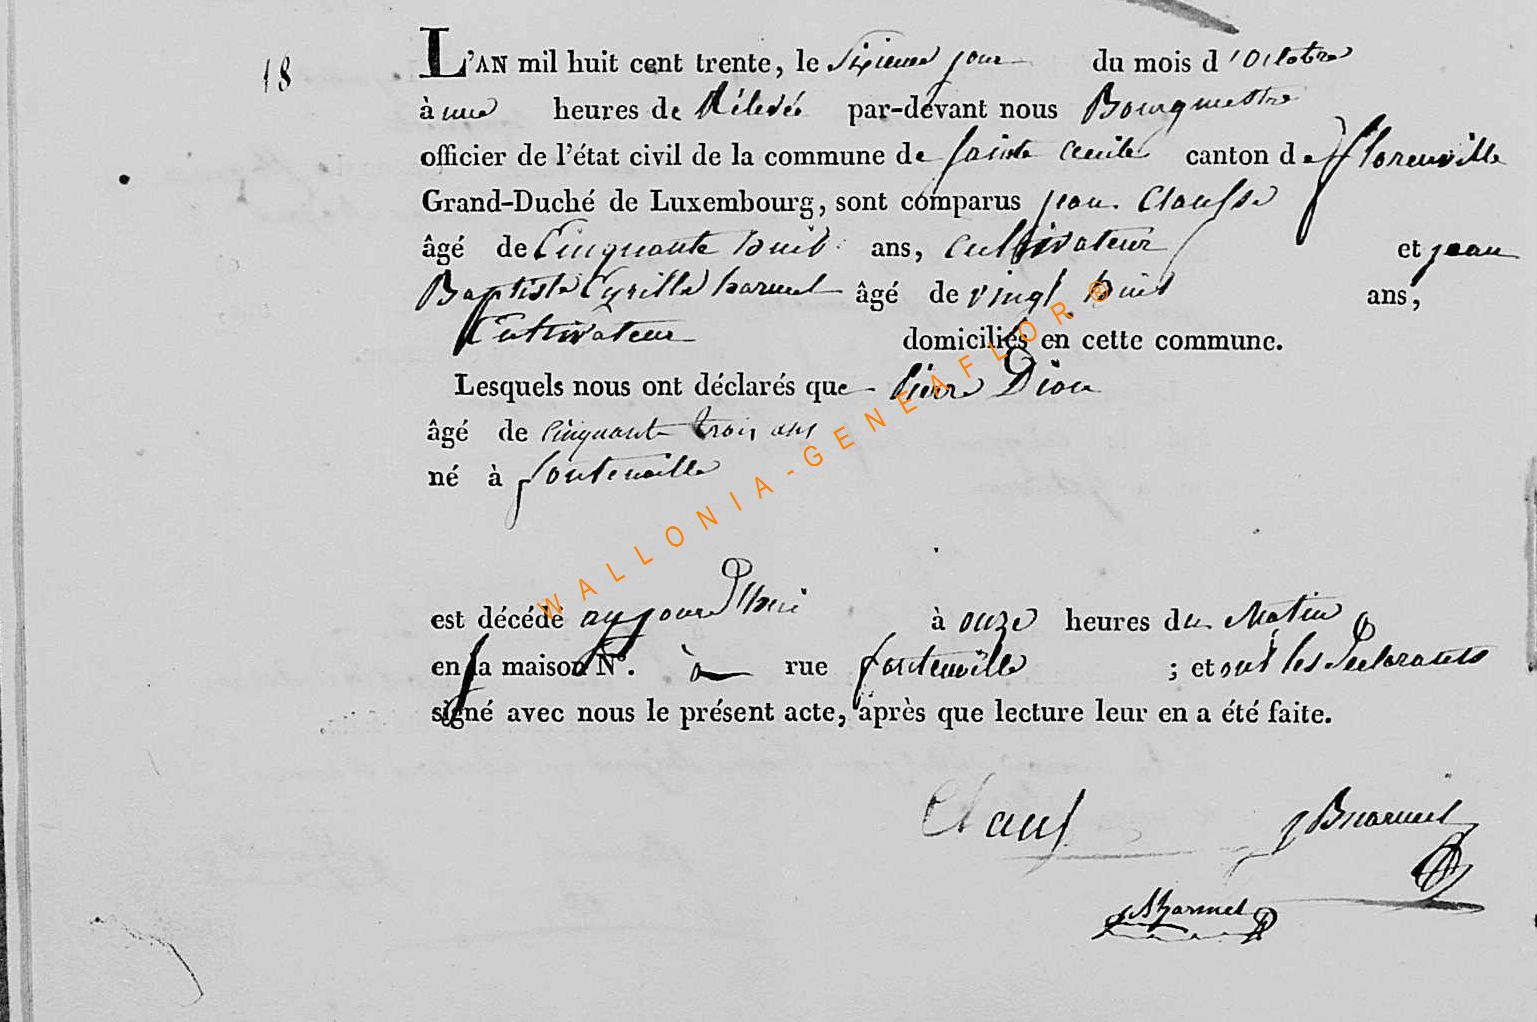 18
L'AN mil huit cent trente, le Sixieme jour du mois d'Octobre
à une heures de Rélevée par-devant nous Bourgmestre
officier de l'état civil de la commune de sainte Cecile canton de florenville
Grand-Duché de Luxembourg, sont comparus jean Clausse
âgé de Cinquante huit ans, Cultivateur et jean
Baptiste Cyrille harmel âgé de vingt huit ans,
Cultivateur domiciliés en cette commune.
Lesquels nous ont déclarés que Pierre Dion
âgé de cinquante trois ans
né à fontenoille
est décédé aujourd'hui à onze heures du Matin
en la maison N°. à rue fontenoille ; et ont les Declarants
signé avec nous le présent acte, après que lecture leur en a été faite.
Claus JBharmel
Harmel
WALLONIA-GENEAFLOR®